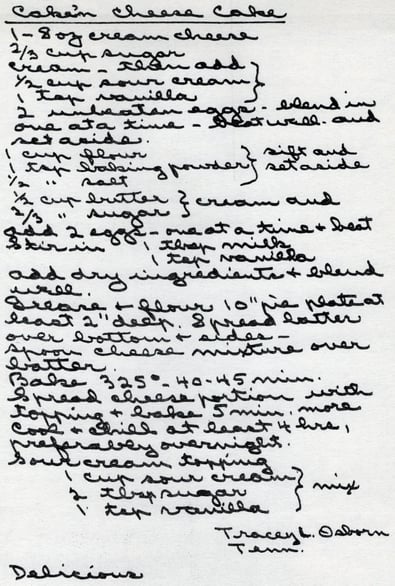 Cake'n Cheese Cake
1 - 8 oz cream cheese
2/3 cup sugar
cream - then add
1/2 cup sour cream
1 tsp vanilla
2 unbeaten eggs - blend in
one at a time - beat well. and
set aside.
1 cup flour } sift and
1 tsp baking powder } set aside
1/2 " salt
1/2 cup butter } cream and
2/3 " sugar
add 2 eggs - one at a time & beat
Stir in 1 tbsp milk
1 tsp vanilla
add dry ingredients & blend
well.
Grease & flour 10" pie plate at
least 2" deep. Spread batter
over bottom & sides -
Spoon cheese mixture over
batter.
Bake 325° - 40-45 min.
Spread cheese portion with
topping & bake 5 min. more
Cool & chill at least 4 hrs,
preferably overnight.
Sour cream topping
1 cup sour cream
2 tbsp sugar } mix
1 tsp vanilla
Tracey L. Osborn
Tenn.
Delicious